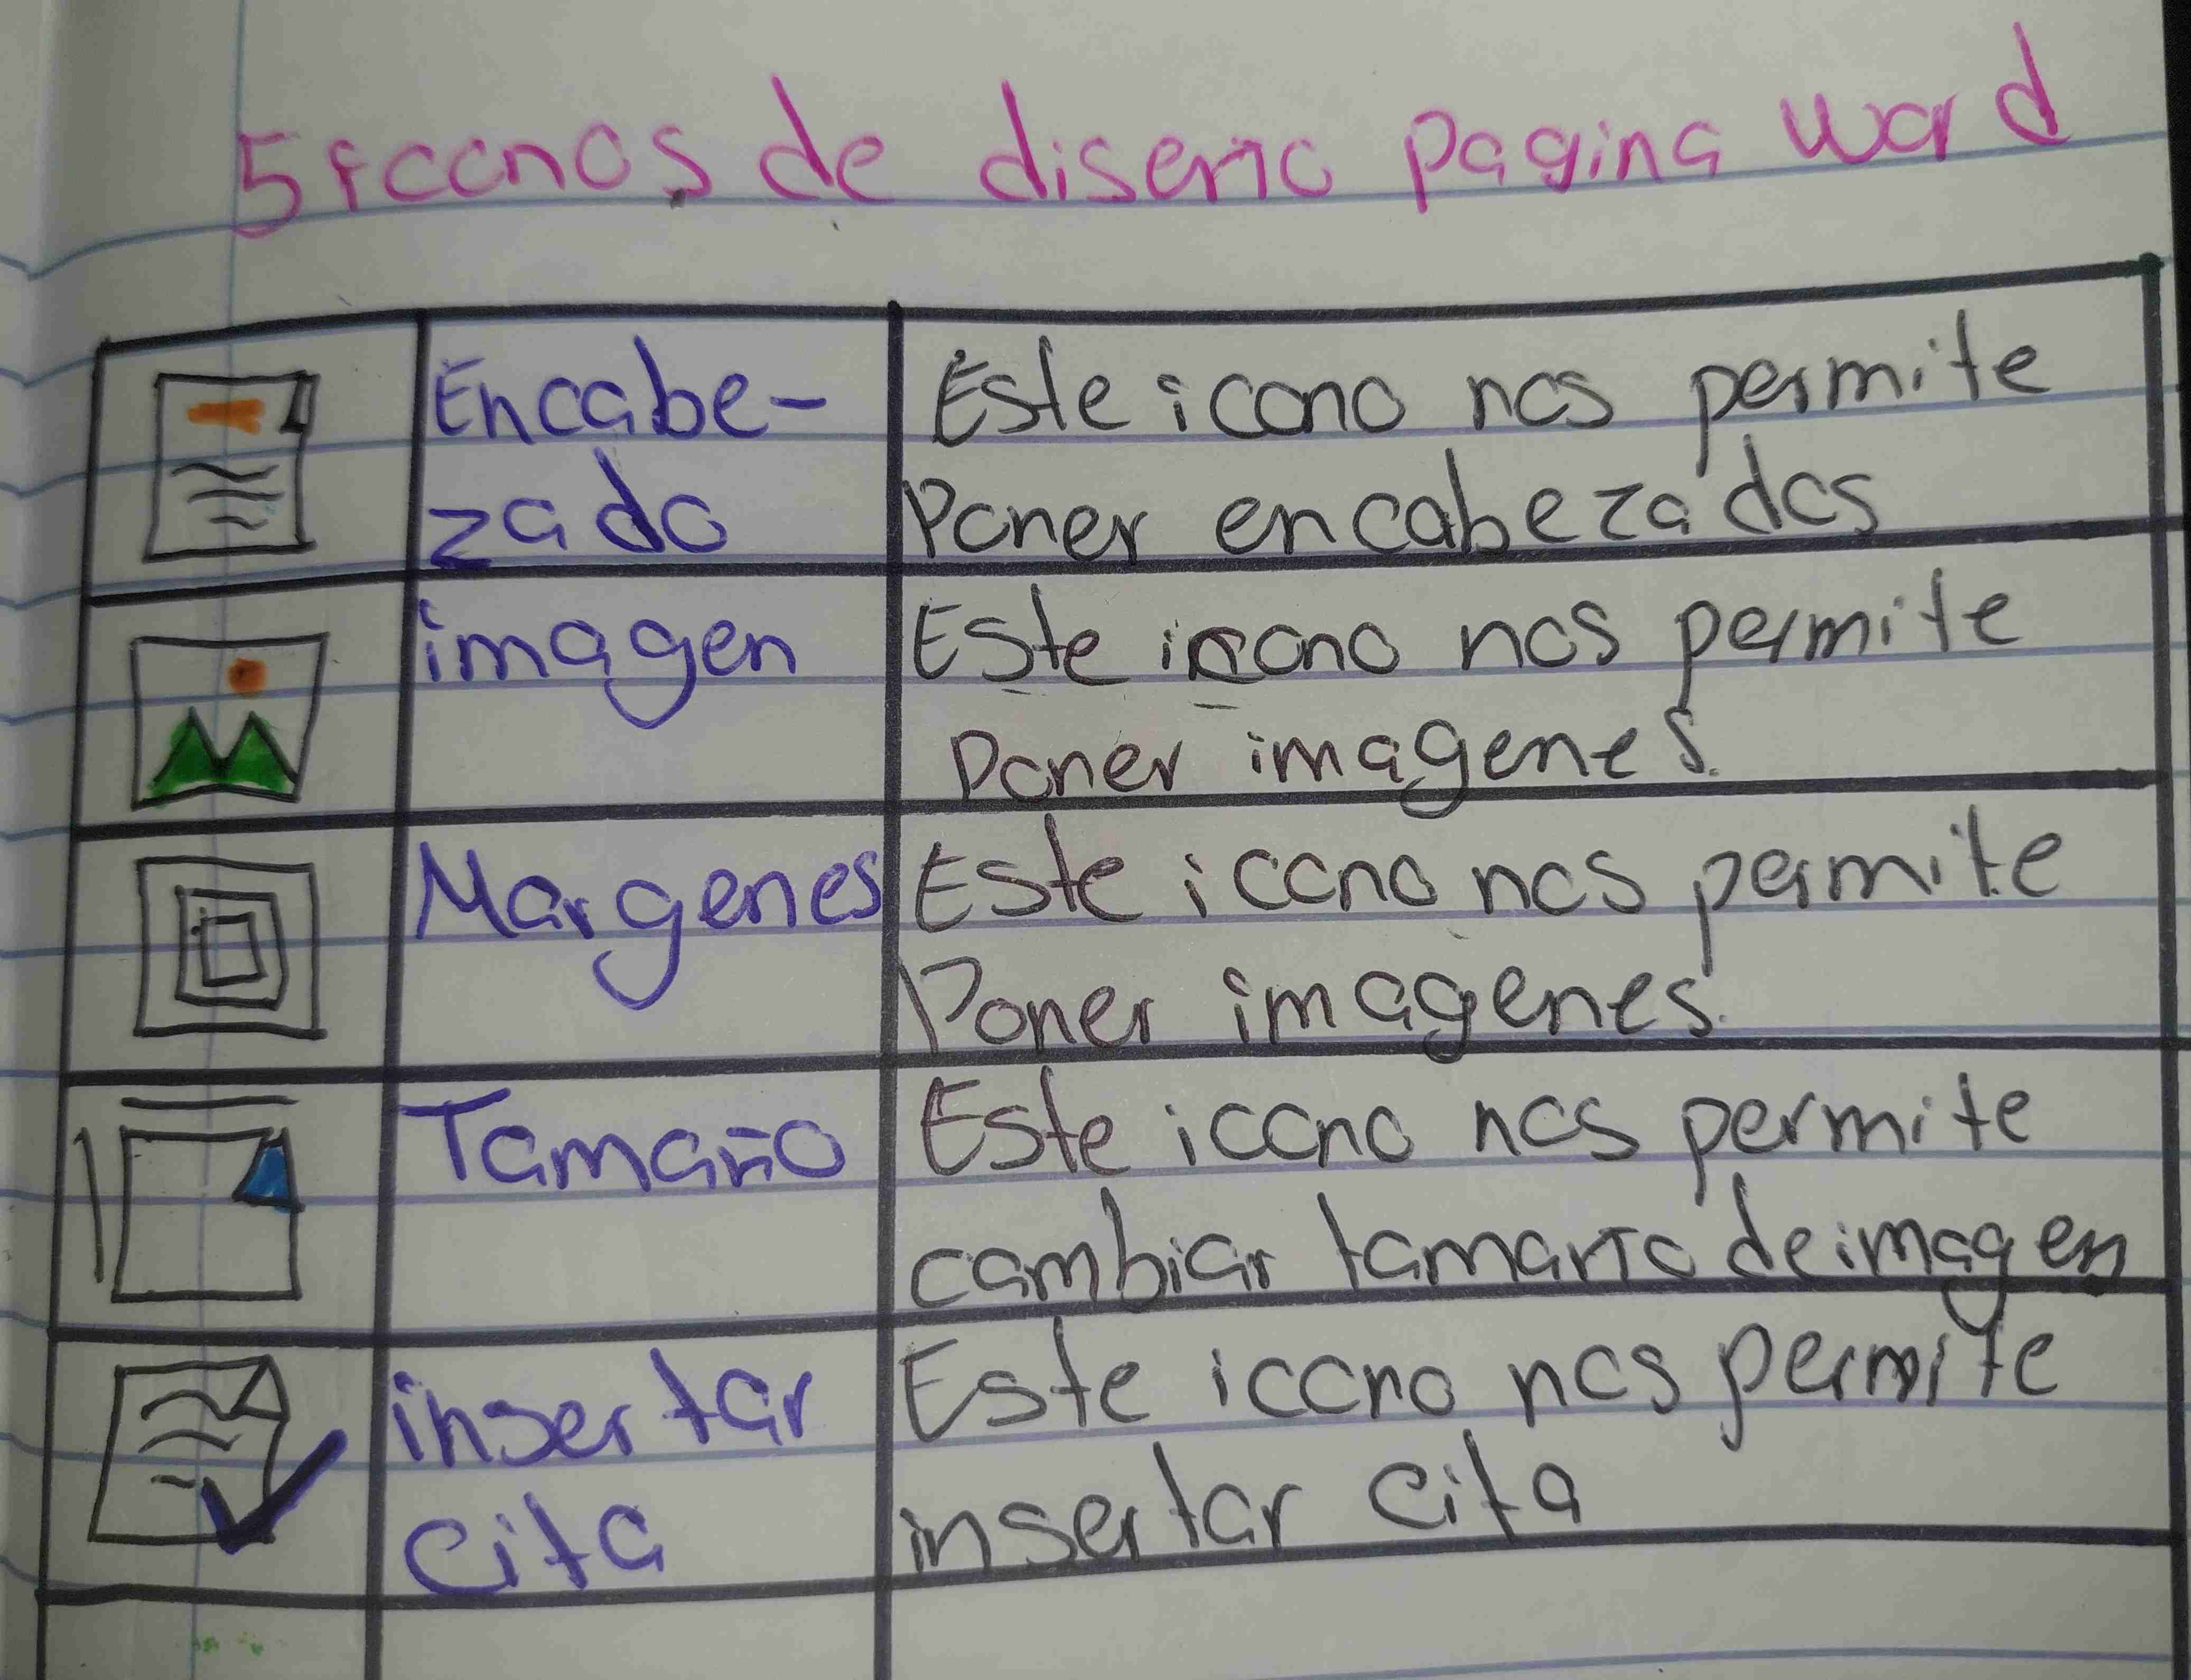 5 iconos de diseño pagina word
Encabe-
zado
Este icono nos permite
Poner encabezados
imagen
Este icono nos permite
Poner imagenes.
Margenes
Este icono nos permite
Poner imagenes.
Tamaño
Este icono nos permite
cambiar tamaño de imagen
insertar
cita
Este icono nos permite
insertar cita